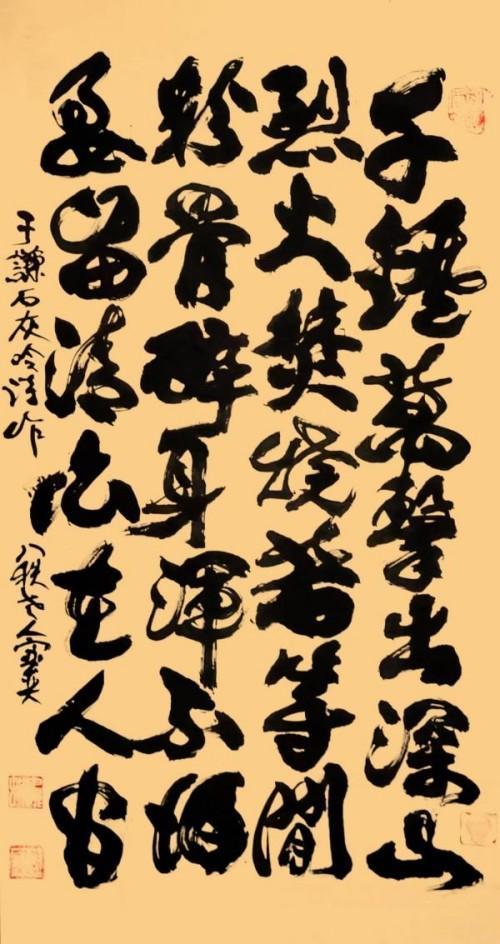 千錘萬擊出深山
烈火焚燒若等閒
粉骨碎身渾不怕
要留清白在人間
于謙石灰吟詩作 八秩老人